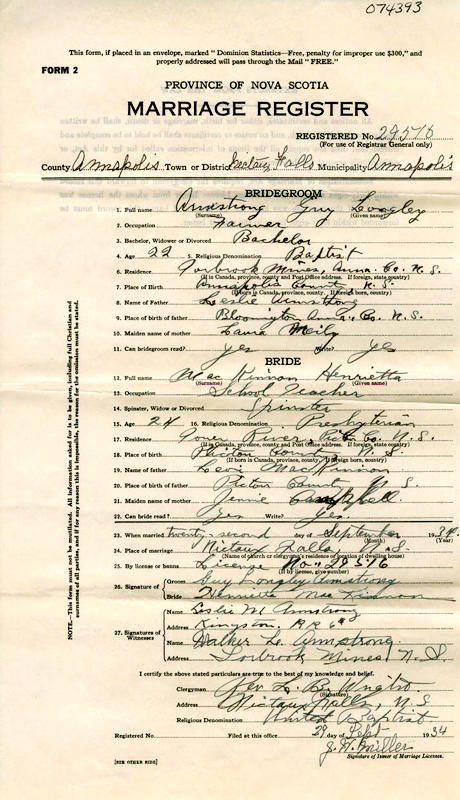 074393
This form, if placed in an envelope, marked "Dominion Statistics—Free, penalty for improper use $300," and
properly addressed will pass through the Mail "FREE."
FORM 2
PROVINCE OF NOVA SCOTIA
MARRIAGE REGISTER
REGISTERED No. 29516
(For use of Registrar General only)
County Annapolis Town or District Nictaux Falls Municipality Annapolis
BRIDEGROOM
1. Full name Armstrong Guy Longley
(Surname) (Given name)
2. Occupation Farmer
3. Bachelor, Widower or Divorced Bachelor
4. Age 22 5. Religious Denomination Baptist
6. Residence Torbrook Mines, Anna. Co. N.S.
(If in Canada, province, county and Post Office address. If foreign, state country)
7. Place of Birth Annapolis County N.S.
(If born in Canada, province, county. If foreign born, country)
8. Name of Father Leslie Armstrong
9. Place of birth of father Bloomington Anna. Co. N.S.
10. Maiden name of mother Laura
11. Can bridegroom read? Yes Write? Yes
BRIDE
12. Full name MacKinnon Henrietta
(Surname) (Given name)
13. Occupation School Teacher
14. Spinster, Widow or Divorced Spinster
15. Age 24 16. Religious Denomination Presbyterian
17. Residence River, Co. N.S.
(If in Canada, province, county and Post Office address. If foreign, state country)
18. Place of birth Pictou County N.S.
(If born in Canada, province, county. If foreign born, country)
19. Name of father Levi MacKinnon
20. Place of birth of father Pictou County N.S.
21. Maiden name of mother Jennie Campbell
22. Can bride read? Yes Write? Yes.
23. When married twenty-second day of September 1934
(Month) (Year)
24. Place of marriage Nictaux Falls N.S.
(Name of church or clergyman's residence or location of dwelling house)
25. By license or banns License No. 29516
(If by license, give number)
26. Signature of Groom Guy Longley Armstrong
Bride Henrietta MacKinnon
27. Signatures of Witnesses
Name Leslie M Armstrong
Address Kingston, RR
Name Walker L. Armstrong
Address Torbrook Mines, N.S.
I certify the above stated particulars are true to the best of my knowledge and belief.
Clergyman Rev. L. B. Wright
(Signature)
Address Nictaux Falls, N.S.
Religious Denomination United Baptist
Registered No. Filed at this office 29 day of Sept 1934
J. W. Miller
Signature of Issuer of Marriage Licenses.
[SEE OTHER SIDE]
NOTE—This form must not be mutilated. All information asked for is to be given, including full Christian and
surnames of all parties, and if for any reason this is impossible, the reason for the omission must be stated.